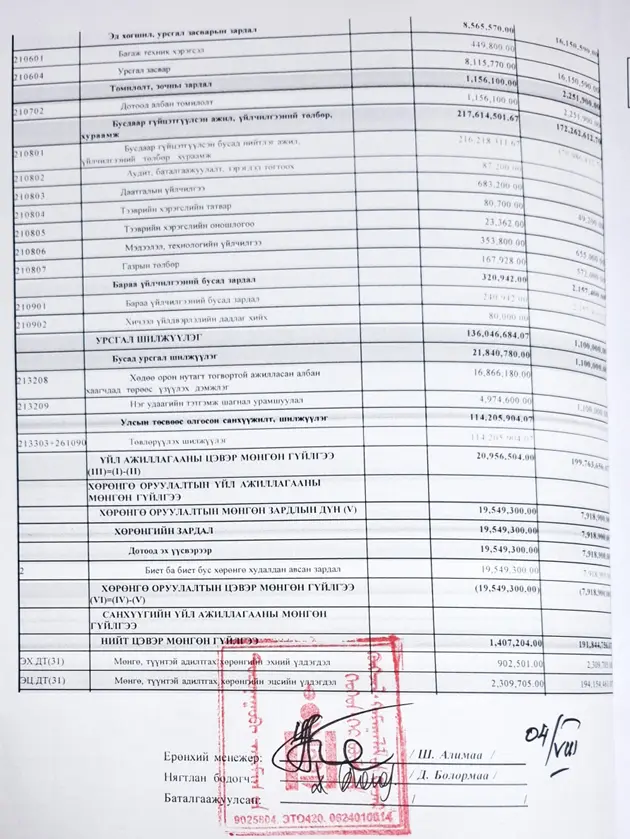 Эд хогшил, урсгал засварын зардал 8,565,570.00 16,150,590.00
210601 Багаж техник хэрэгсэл 449,800.00
210604 Урсгал засвар 8,115,770.00 16,150,590.00
Томилолт, зочны зардал 1,156,100.00 2,251,900.00
210702 Дотоод албан томилолт 1,156,100.00 2,251,900.00
Бусдаар гүйцэтгүүлсэн ажил, үйлчилгээний төлбөр, хураамж 217,614,501.67
210801 Бусдаар гүйцэтгүүлсэн бусад нийтлэг ажил, үйлчилгээний төлбөр хураамж 216,218,311.67
210802 Аудит, баталгаажуулалт, зэрэглэл тогтоох 87,200.00
210803 Даатгалын үйлчилгээ 683,200.00
210804 Тээврийн хэрэгслийн татвар 80,700.00
210805 Тээврийн хэрэгслийн оношлогоо 23,362.00
210806 Мэдээлэл, технологийн үйлчилгээ 353,800.00
210807 Газрын төлбөр 167,928.00
Бараа үйлчилгээний бусад зардал 320,942.00
210901 Бараа үйлчилгээний бусад зардал 240,942.00
210902 Хичээл үйлдвэрлэлийн дадлага хийх 80,000.00
УРСГАЛ ШИЛЖҮҮЛЭГ 136,046,684.07 1,100,000.00
Бусад урсгал шилжүүлэг 21,840,780.00 1,100,000.00
213208 Хөдөө орон нутагт тогвортой ажилласан албан хаагчдад төрөөс үзүүлэх дэмжлэг 16,866,180.00
213209 Нэг удаагийн тэтгэмж шагнал урамшуулал 4,974,600.00 1,100,000.00
Улсын төсвөөс олгосон санхүүжилт, шилжүүлэг 114,205,904.07
213303+261090 Төвлөрүүлэх шилжүүлэг 114,205,904.07
ҮЙЛ АЖИЛЛАГААНЫ ЦЭВЭР МӨНГӨН ГҮЙЛГЭЭ (III)=(I)-(II) 20,956,504.00
ХӨРӨНГӨ ОРУУЛАЛТЫН ҮЙЛ АЖИЛЛАГААНЫ МӨНГӨН ГҮЙЛГЭЭ
ХӨРӨНГӨ ОРУУЛАЛТЫН МӨНГӨН ЗАРДЛЫН ДҮН (V) 19,549,300.00 7,918,900.00
ХӨРӨНГИЙН ЗАРДАЛ 19,549,300.00 7,918,900.00
Дотоод эх үүсвэрээр 19,549,300.00 7,918,900.00
2 Биет ба биет бус хөрөнгө худалдан авсан зардал 19,549,300.00 7,918,900.00
ХӨРӨНГӨ ОРУУЛАЛТЫН ЦЭВЭР МӨНГӨН ГҮЙЛГЭЭ (VI)=(IV)-(V) (19,549,300.00)
САНХҮҮГИЙН ҮЙЛ АЖИЛЛАГААНЫ МӨНГӨН ГҮЙЛГЭЭ
НИЙТ ЦЭВЭР МӨНГӨН ГҮЙЛГЭЭ 1,407,204.00
ЭХ.ДТ(31) Мөнгө, түүнтэй адилтгах хөрөнгийн эхний үлдэгдэл 902,501.00
ЭЦ.ДТ(31) Мөнгө, түүнтэй адилтгах хөрөнгийн эцсийн үлдэгдэл 2,309,705.00
04/VIII
Ерөнхий менежер: / Ш. Алимаа /
Нягтлан бодогч: / Д. Болормаа /
Баталгаажуулсан: / /
9025804. ЭТО420. 0624010614